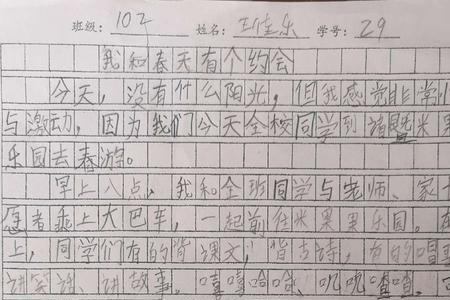 班级：102 姓名：王佳乐 学号：29
我和春天有个约会
今天，没有什么阳光，但我感觉非常
与激动，因为我们今天全校同学到诸暨米果
乐园去春游。
早上八点，我和全班同学与老师、家
愿者乘上大巴车，一起前往米果果乐园。在
上，同学们有的背课文，背古诗，有的唱
讲笑话、讲故事。嘻嘻哈哈、叽叽喳喳。